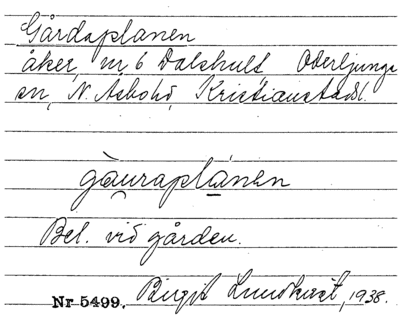 Gårdsplanen
åker, nr 6 Dalshult, Oderljunga
sn, N. Åsbohd, Kristianstadsl.
gàuraplánen
Bel. vid gården.
Nr 5499. Birgit Lundkvist, 1938.